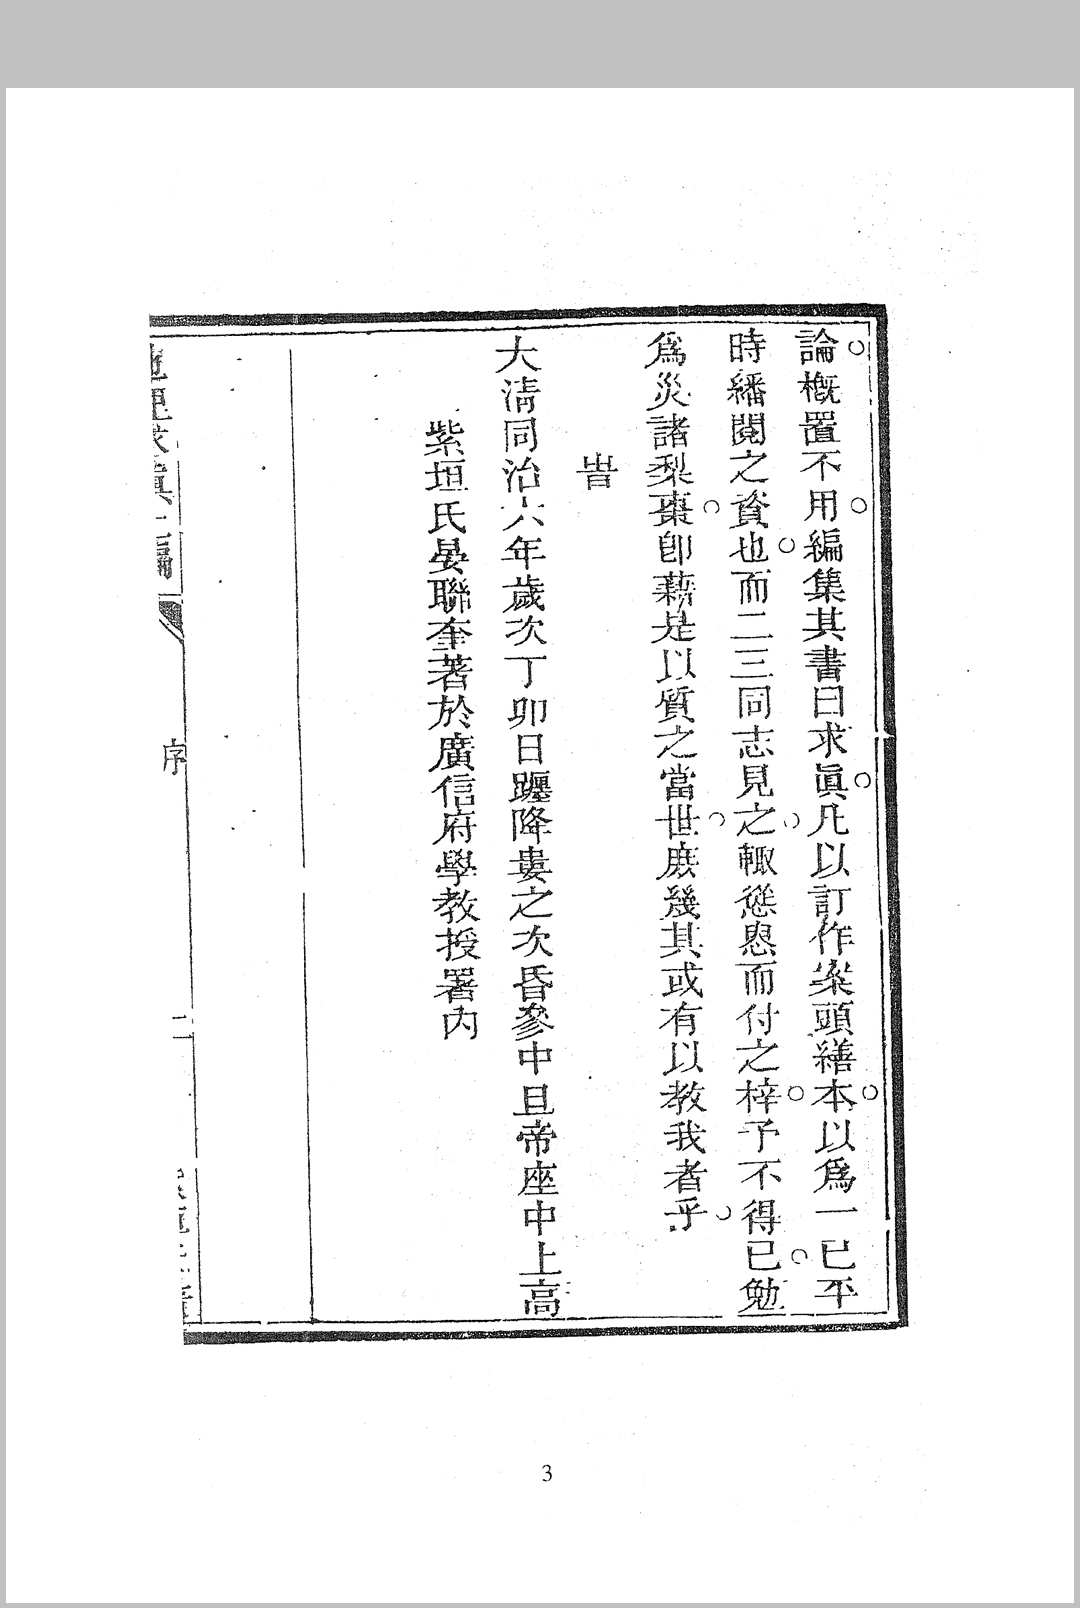 論槪置不用編集其書曰求眞凡以訂作案頭繕本以爲一已平
時繙閱之資也而二三同志見之輙慫恿而付之梓予不得已勉
爲災諸梨棗卽藉是以質之當世庶幾其或有以教我者乎
旹
大淸同治六年歲次丁卯日躔降婁之次昏參中旦帝座中上高
紫垣氏晏聯奎著於廣信府學教授署內
地理求眞上編
序
二
3